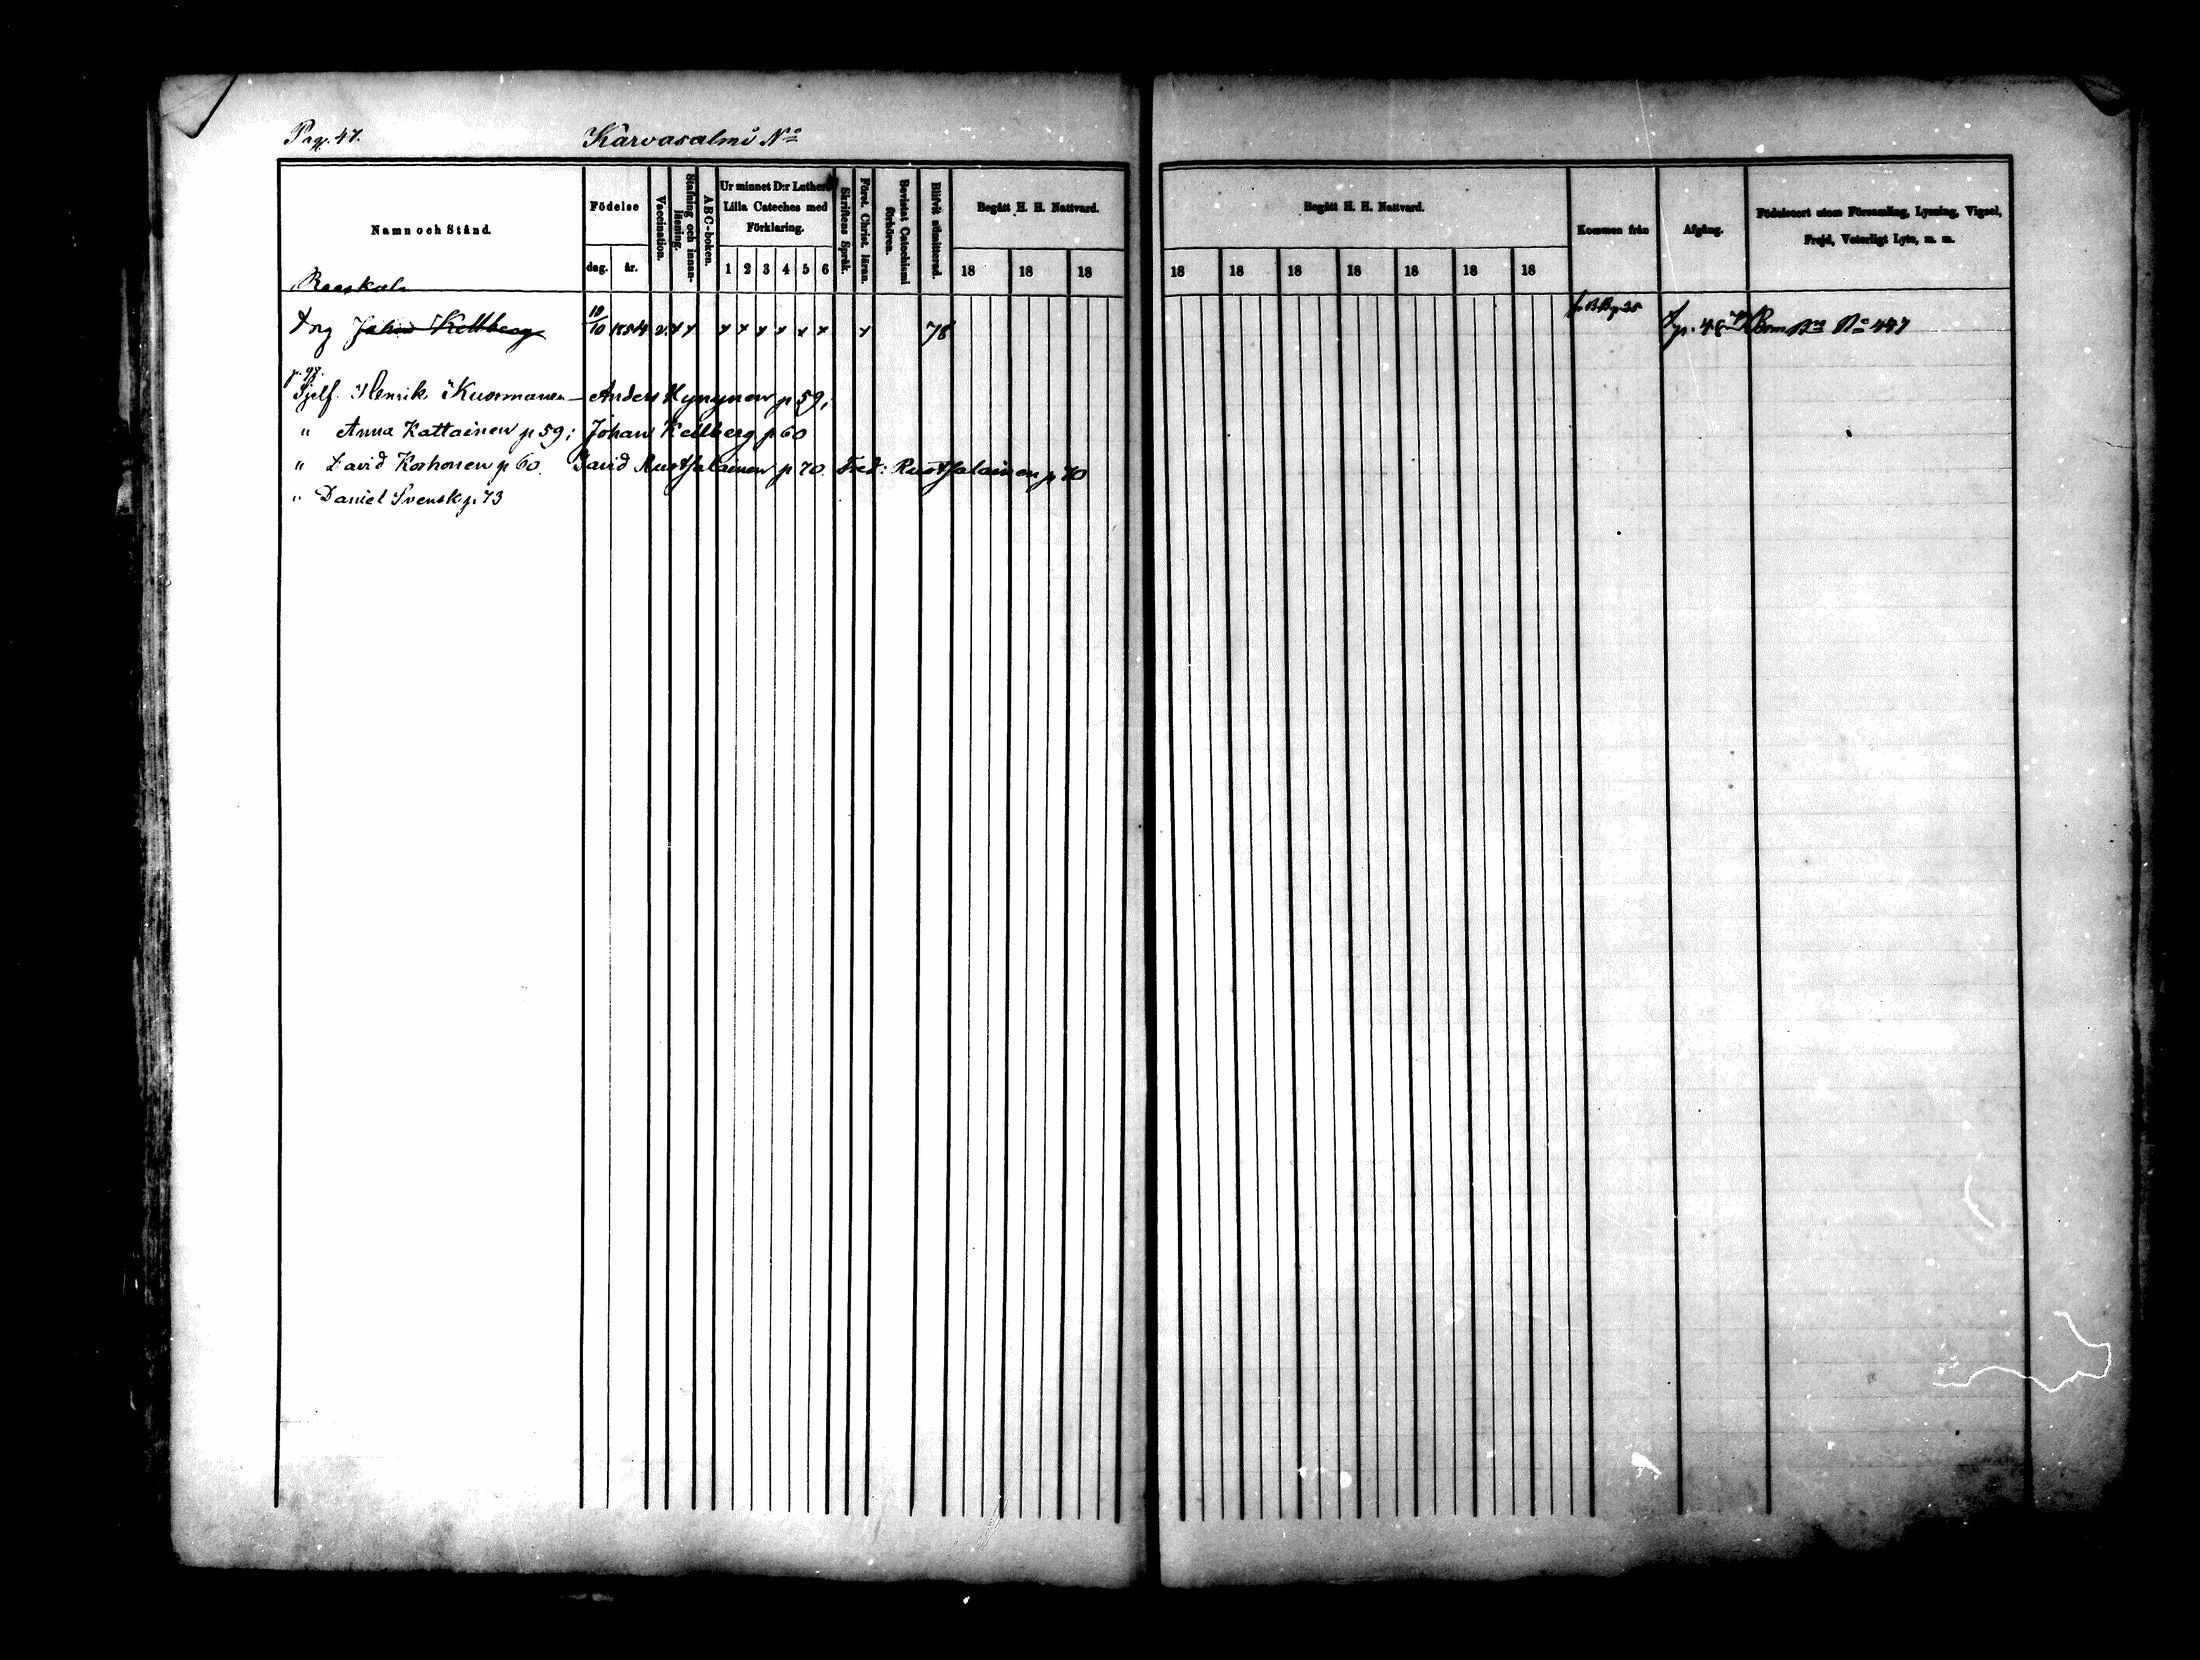 Pag. 47.
Karvasalmi No
Namn och Stånd.
Födelse
dag. år.
Vaccination.
Stafning och innanläsning.
ABC-boken.
Ur minnet D:r Luthers Lilla Cateches med Förklaring.
1 2 3 4 5 6
Skriftens Språk.
Föret. Christ. läran.
Bevistat Catechismi förhören.
Blifvit admitterad.
Begått H. H. Nattvard.
18 18 18
Begått H. H. Nattvard.
18 18 18 18 18 18 18
Kommen från
Afgång.
Födelseort utom Församling, Lysning, Vigsel, Frejd, Vaterligt Lyte, m. m.
Johan Kellberg 10/10 1854 v. x x x x x x x x x 78
p. 48
No 447
Sjelf. Henrik Kuosmanen – Anders Hynynen p 59;
" Anna Kattainen p 59; Johan Kellberg p 60
" David Korhonen p 60. David Rustfalainen p 70. Fred: Rustfalainen p 70
" Daniel Svensk p. 73